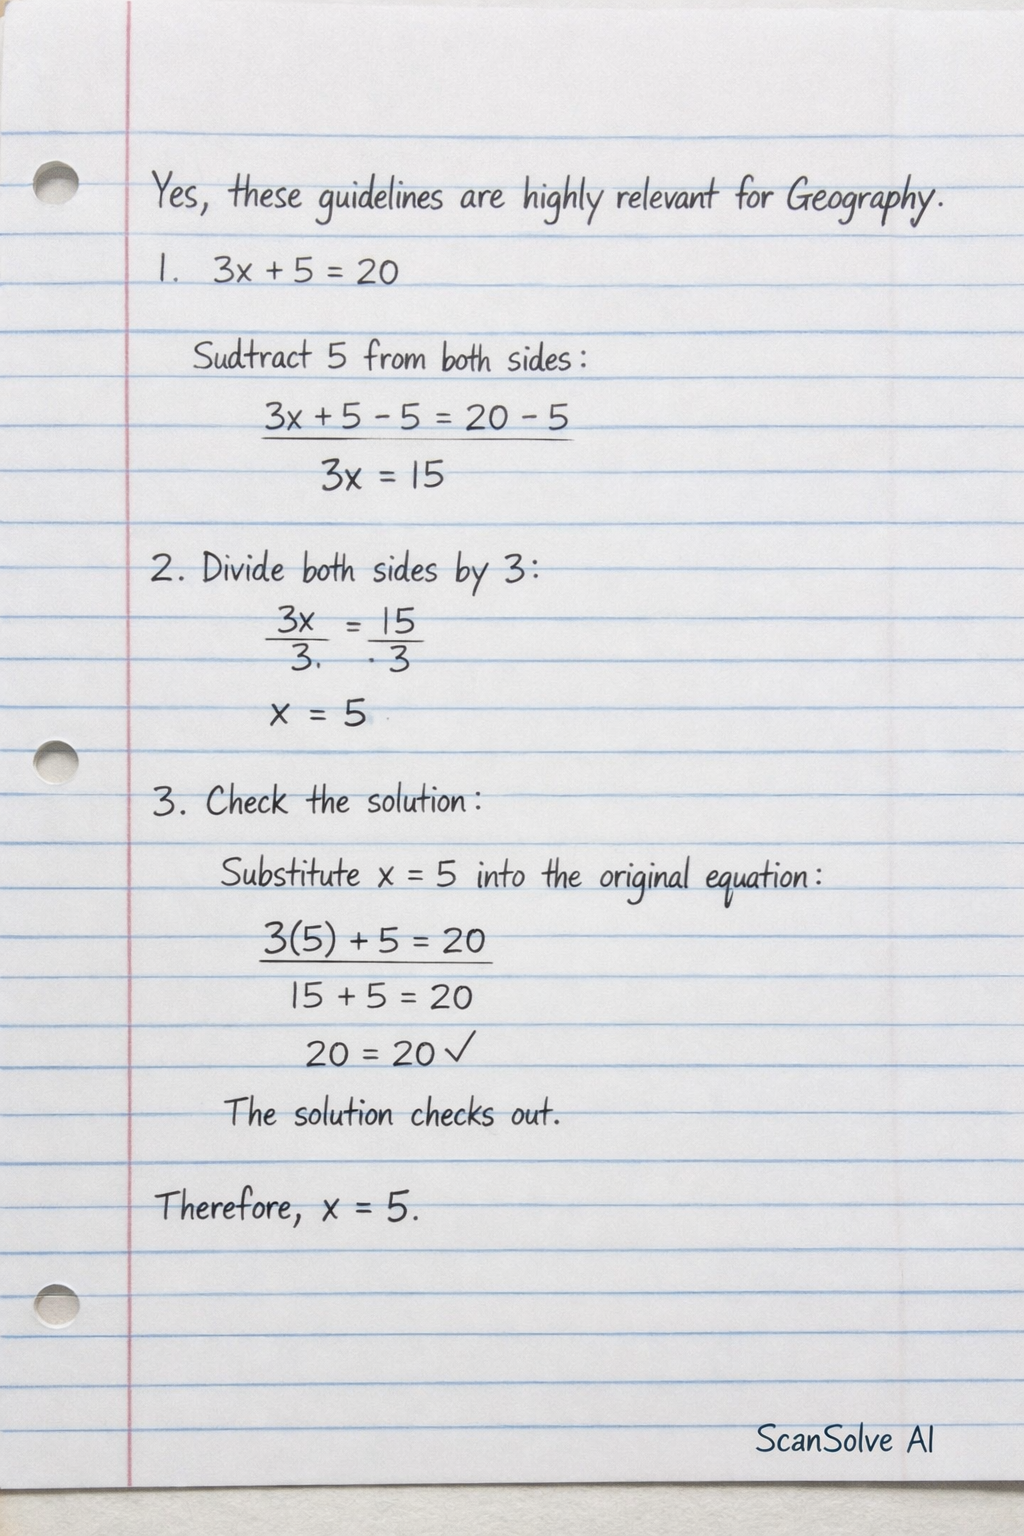 Yes, these guidelines are highly relevant for Geography.
1. 3x + 5 = 20
Sudtract 5 from both sides:
3x + 5 - 5 = 20 - 5
3x = 15
2. Divide both sides by 3:
3x = 15
3. · 3
x = 5
3. Check the solution:
Substitute x = 5 into the original equation:
3(5) + 5 = 20
15 + 5 = 20
20 = 20 ✓
The solution checks out.
Therefore, x = 5.
ScanSolve AI